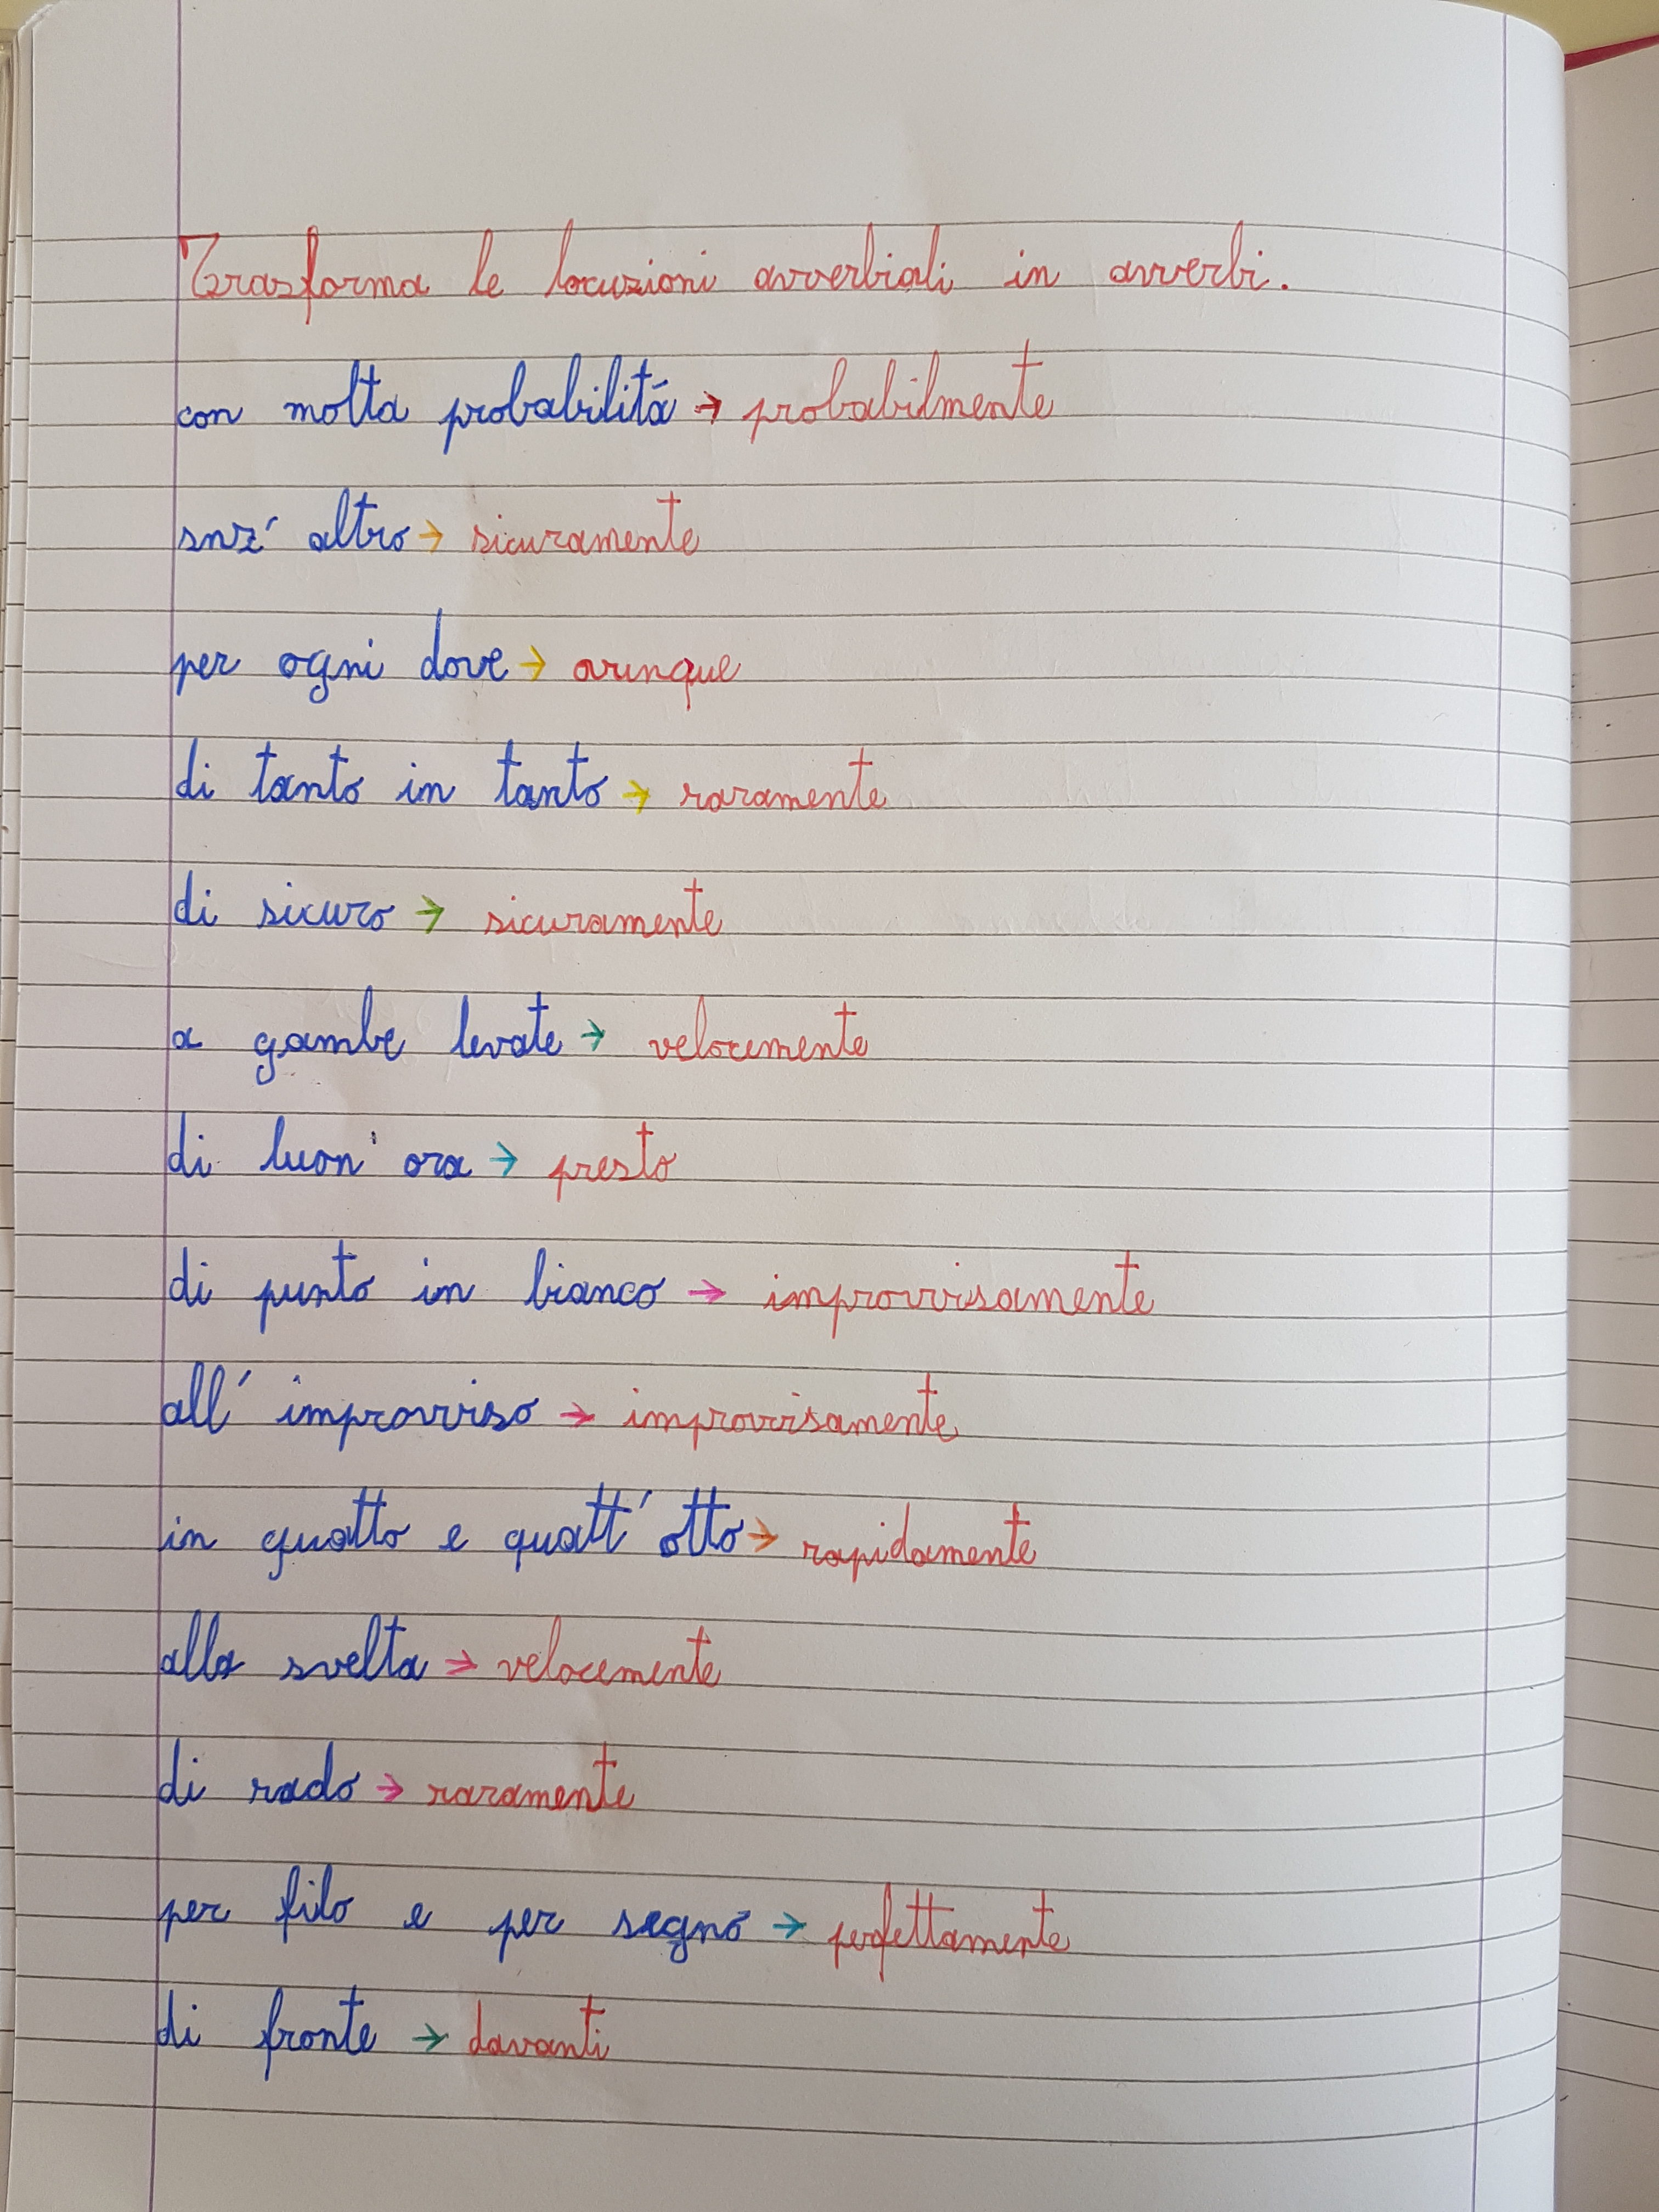 Trasforma le locuzioni avverbiali in avverbi.
con molta probabilitá → probabilmente
snz' altro → sicuramente
per ogni dove → ovunque
di tanto in tanto → raramente
di sicuro → sicuramente
a gambe levate → velocemente
di buon' ora → presto
di punto in bianco → improvvisamente
all' improvviso → improvvisamente
in quatto e quatt' otto → rapidamente
alla svelta → velocemente
di rado → raramente
per filo e per segno → perfettamente
di fronte → davanti